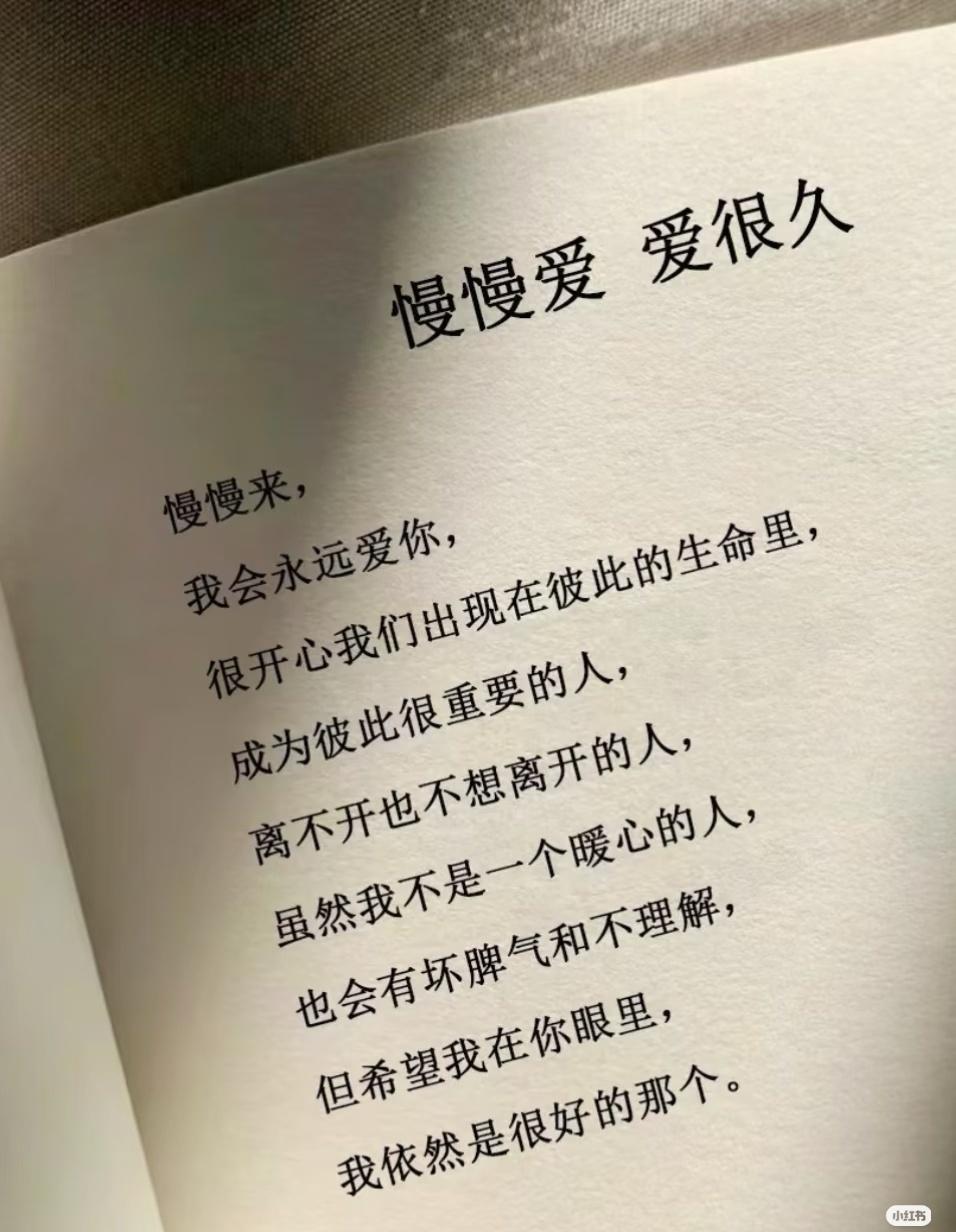 慢慢爱 爱很久
慢慢来，
我会永远爱你，
很开心我们出现在彼此的生命里，
成为彼此很重要的人，
离不开也不想离开的人，
虽然我不是一个暖心的人，
也会有坏脾气和不理解，
但希望我在你眼里，
我依然是很好的那个。
小红书